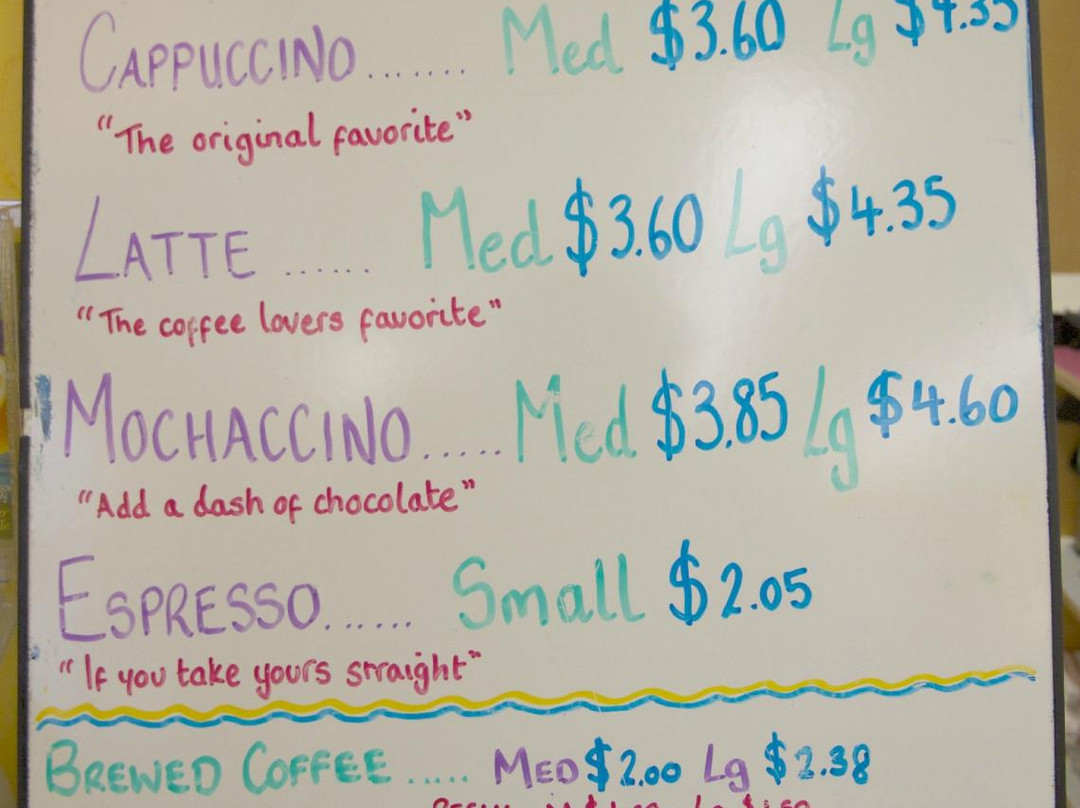 CAPPUCCINO....... Med $3.60 Lg $4.35
"The original favorite"
LATTE ...... Med $3.60 Lg $4.35
"The coffee lovers favorite"
MOCHACCINO..... Med $3.85 Lg $4.60
"Add a dash of chocolate"
ESPRESSO...... Small $2.05
"If you take yours straight"
BREWED COFFEE ..... MED $2.00 Lg $2.38